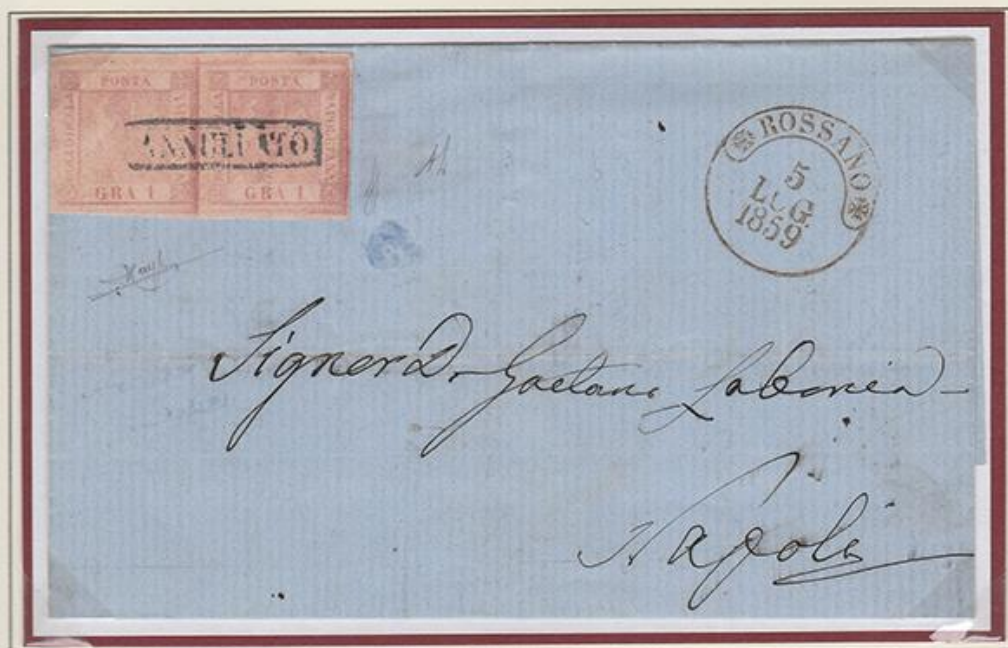 POSTA POSTA
ANNULLATO
GRA 1 GRA 1
ROSSANO
5
LUG.
1859
Signor D. Gaetano Labonia
Napoli